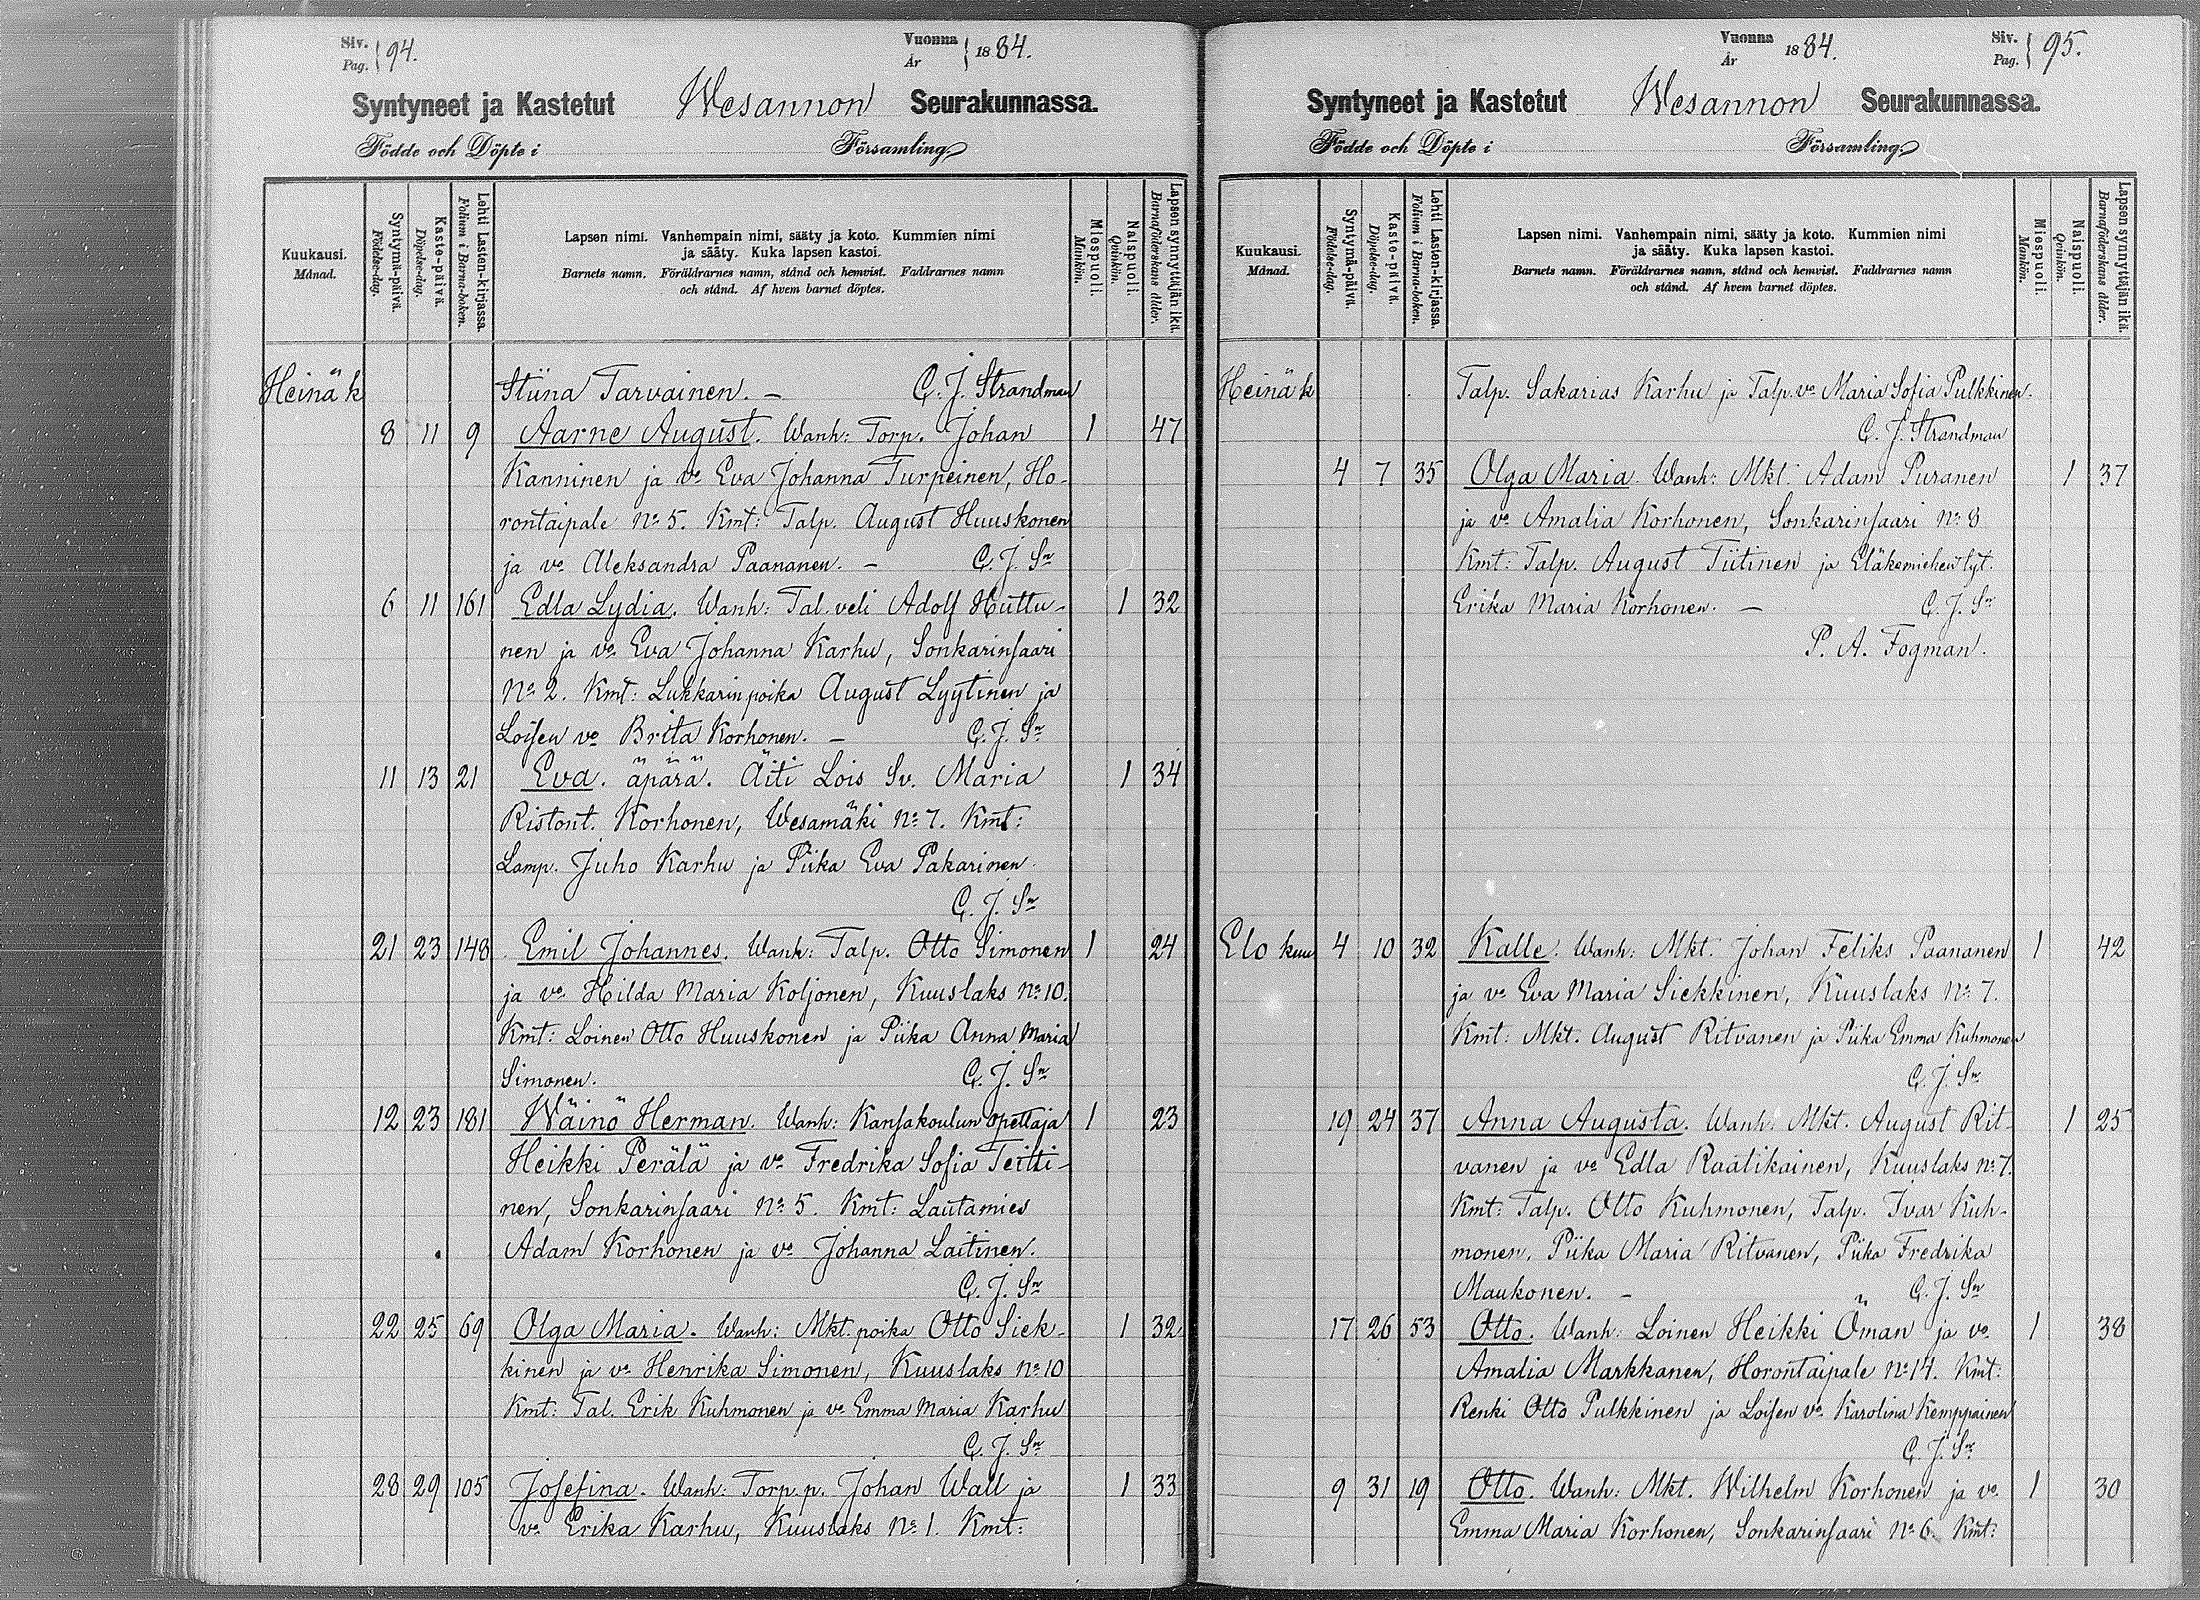 Siv. Pag. 94. Vuonna År 1884.
Syntyneet ja Kastetut Wesannon Seurakunnassa.
Födde och Döpte i Församling
Kuukausi. Månad.
Syntymä-päivä. Födelse-dag.
Kaste-päivä. Döpelse-dag.
Lehti Lasten-kirjassa. Folium i Barna-boken.
Lapsen nimi. Vanhempain nimi, sääty ja koto. Kummien nimi
ja sääty. Kuka lapsen kastoi.
Barnets namn. Föräldrarnes namn, stånd och hemvist. Faddrarnes namn
och stånd. Af hvem barnet döptes.
Miespuoli. Mankön.
Naispuoli. Qvinkön.
Lapsen synnyttäjän ikä. Barnaföderskans ålder.
Heinäk Stiina Tarvainen. — C. J. Strandman
8 11 9 Aarne August. Wanh: Torp. Johan 1 47
Kanninen ja vo Eva Johanna Turpeinen, Ho-
rontaipale No 5. Kmt: Talp. August Huuskonen
ja vo Aleksandra Paananen. — C. J. Sn
6 11 161 Edla Lydia. Wanh: Tal. veli Adolf Huttu- 1 32
nen ja vo Eva Johanna Karhu, Sonkarinsaari
No 2. Kmt: Lukkarin poika August Lyytinen ja
Loisen vo Brita Korhonen. — C. J. Sn
11 13 21 Eva. äpärä. Äiti Lois Sv. Maria 1 34
Ristont. Korhonen, Wesamäki No 7. Kmt:
Lamp. Juho Karhu ja Piika Eva Pakarinen
C. J. Sn
21 23 148 Emil Johannes. Wanh: Talp. Otto Simonen 1 24
ja vo Hilda Maria Koljonen, Kuuslaks No 10.
Kmt: Loinen Otto Huuskonen ja Piika Anna Maria
Simonen. C. J. Sn
12 23 181 Wäinö Herman. Wanh: Kansakoulun opettaja 1 23
Heikki Perälä ja vo Fredrika Sofia Teitti-
nen, Sonkarinsaari No 5. Kmt: Lautamies
Adam Korhonen ja vo Johanna Laitinen.
C. J. Sn
22 25 69 Olga Maria. Wanh: Mkt. poika Otto Siek- 1 32
kinen ja vo Henrika Simonen, Kuuslaks No 10
Kmt: Tal. Erik Kuhmonen ja vo Emma Maria Karhu
C. J. Sn
28 29 105 Josefina. Wanh: Torp. p. Johan Wall ja 1 33
vo Erika Karhu, Kuuslaks No 1. Kmt:
Vuonna År 1884. Siv. Pag. 95.
Syntyneet ja Kastetut Wesannon Seurakunnassa.
Födde och Döpte i Församling
Kuukausi. Månad.
Syntymä-päivä. Födelse-dag.
Kaste-päivä. Döpelse-dag.
Lehti Lasten-kirjassa. Folium i Barna-boken.
Lapsen nimi. Vanhempain nimi, sääty ja koto. Kummien nimi
ja sääty. Kuka lapsen kastoi.
Barnets namn. Föräldrarnes namn, stånd och hemvist. Faddrarnes namn
och stånd. Af hvem barnet döptes.
Miespuoli. Mankön.
Naispuoli. Qvinkön.
Lapsen synnyttäjän ikä. Barnaföderskans ålder.
Heinäk Talp. Sakarias Karhu ja Talp. vo Maria Sofia Pulkkinen.
C. J. Strandman
4 7 35 Olga Maria. Wanh: Mkt. Adam Puranen 1 37
ja vo Amalia Korhonen, Sonkarinsaari No 8
Kmt: Talp. August Tiitinen ja Eläkemiehen tyt.
Erika Maria Korhonen. — C. J. Sn
P. A. Fogman.
Elo kuu 4 10 32 Kalle. Wanh: Mkt. Johan Feliks Paananen 1 42
ja vo Eva Maria Siekkinen, Kuuslaks No 7.
Kmt: Mkt. August Ritvanen ja Piika Emma Kuhmonen
C. J. Sn
19 24 37 Anna Augusta. Wanh: Mkt. August Rit- 1 25
vanen ja vo Edla Raatikainen, Kuuslaks No 7.
Kmt: Talp. Otto Kuhmonen, Talp. Ivar Kuh-
monen, Piika Maria Ritvanen, Piika Fredrika
Maukonen. — C. J. Sn
17 26 53 Otto. Wanh: Loinen Heikki Öman ja vo 1 38
Amalia Markkanen, Horontaipale No 14. Kmt:
Renki Otto Pulkkinen ja Loisen vo Karolina Kemppainen
C. J. Sn
9 31 19 Otto. Wanh: Mkt. Wilhelm Korhonen ja vo 1 30
Emma Maria Korhonen, Sonkarinsaari No 6. Kmt: